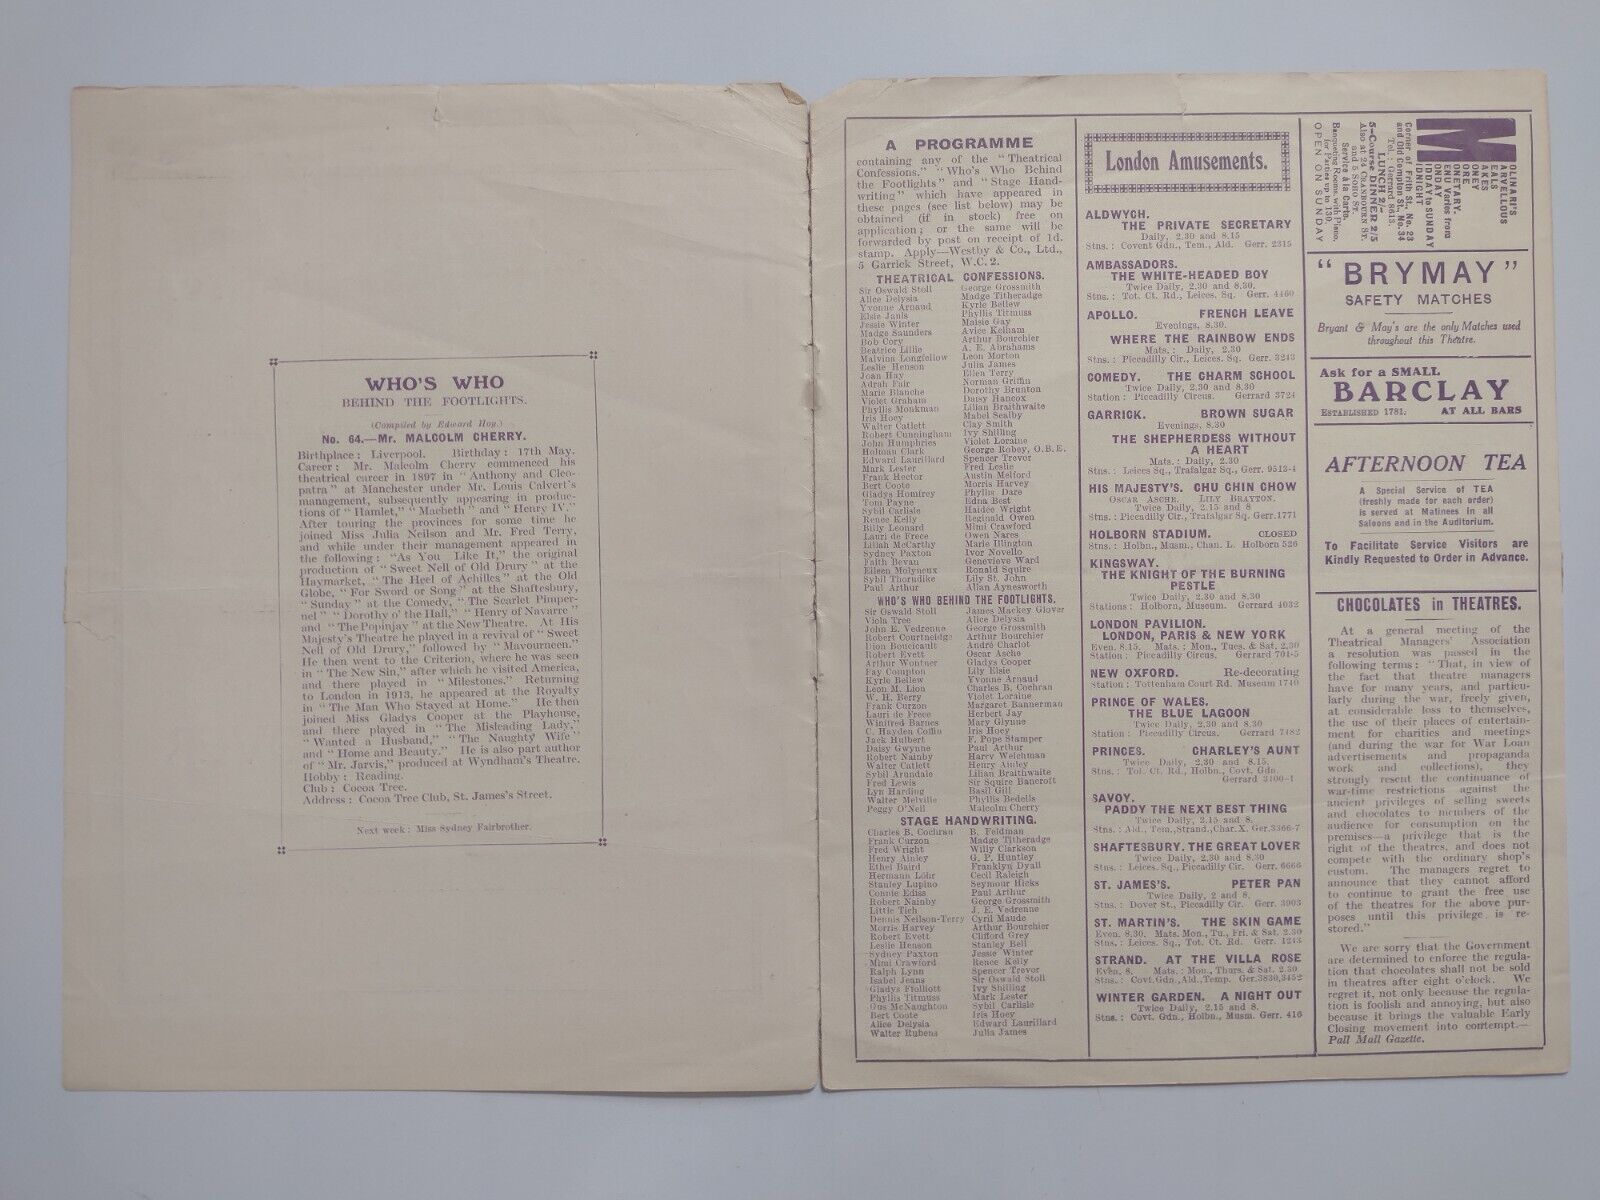 WHO'S WHO
BEHIND THE FOOTLIGHTS.
(Compiled by Edward Hoy.)
No. 64.—Mr. MALCOLM CHERRY.
Birthplace: Liverpool. Birthday: 17th May.
Career: Mr. Malcolm Cherry commenced his
theatrical career in 1897 in "Anthony and Cleo-
patra" at Manchester under Mr. Louis Calvert's
management, subsequently appearing in produc-
tions of "Hamlet," "Macbeth" and "Henry IV."
After touring the provinces for some time he
joined Miss Julia Neilson and Mr. Fred Terry,
and while under their management appeared in
the following: "As You Like It," the original
production of "Sweet Nell of Old Drury" at the
Haymarket, "The Heel of Achilles" at the Old
Globe, "For Sword or Song" at the Shaftesbury,
"Sunday" at the Comedy, "The Scarlet Pimper-
nel" "Dorothy o' the Hall," "Henry of Navarre"
and "The Popinjay" at the New Theatre. At His
Majesty's Theatre he played in a revival of "Sweet
Nell of Old Drury," followed by "Mavourneen."
He then went to the Criterion, where he was seen
in "The New Sin," after which he visited America,
and there played in "Milestones." Returning
to London in 1913, he appeared at the Royalty
in "The Man Who Stayed at Home." He then
joined Miss Gladys Cooper at the Playhouse,
and there played in "The Misleading Lady,"
"Wanted a Husband," "The Naughty Wife"
and "Home and Beauty." He is also part author
of "Mr. Jarvis," produced at Wyndham's Theatre.
Hobby: Reading.
Club: Cocoa Tree.
Address: Cocoa Tree Club, St. James's Street.
Next week: Miss Sydney Fairbrother.
A PROGRAMME
containing any of the "Theatrical
Confessions," "Who's Who Behind
the Footlights" and "Stage Hand-
writing" which have appeared in
these pages (see list below) may be
obtained (if in stock) free on
application; or the same will be
forwarded by post on receipt of 1d.
stamp. Apply—Westby & Co., Ltd.,
5 Garrick Street, W.C.2.
THEATRICAL CONFESSIONS.
Sir Oswald Stoll George Grossmith
Alice Delysia Madge Titheradge
Yvonne Arnaud Kyrle Bellew
Elsie Janis Phyllis Titmuss
Jessie Winter Maisie Gay
Madge Saunders Avice Kelham
Bob Cory Arthur Bourchier
Beatrice Lillie A. E. Abrahams
Malvina Longfellow Leon Morton
Leslie Henson Julia James
Joan Hay Ellen Terry
Adrah Fair Norman Griffin
Marie Blanche Dorothy Brunton
Violet Graham Daisy Hancox
Phyllis Monkman Lilian Braithwaite
Iris Hoey Mabel Sealby
Walter Catlett Clay Smith
Robert Cunningham Ivy Shilling
John Humphries Violet Loraine
Holman Clark George Robey, O.B.E.
Edward Laurillard Spencer Trevor
Mark Lester Fred Leslie
Frank Hector Austin Melford
Bert Coote Morris Harvey
Gladys Homfrey Phyllis Dare
Tom Payne Edna Best
Sybil Carlisle Haidée Wright
Renee Kelly Reginald Owen
Billy Leonard Mimi Crawford
Lauri de Frece Owen Nares
Lillah McCarthy Marie Illington
Sydney Paxton Ivor Novello
Faith Bevan Genevieve Ward
Eileen Molyneux Ronald Squire
Sybil Thorndike Lily St. John
Paul Arthur Allan Aynesworth
WHO'S WHO BEHIND THE FOOTLIGHTS.
Sir Oswald Stoll James Mackey Glover
Viola Tree Alice Delysia
John E. Vedrenne George Grossmith
Robert Courtneidge Arthur Bourchier
Dion Boucicault André Charlot
Robert Evett Oscar Asche
Arthur Wontner Gladys Cooper
Fay Compton Lily Elsie
Kyrle Bellew Yvonne Arnaud
Leon M. Lion Charles B. Cochran
W. H. Berry Violet Loraine
Frank Curzon Margaret Bannerman
Lauri de Frece Herbert Jay
Winifred Barnes Mary Glynne
C. Hayden Coffin Iris Hoey
Jack Hulbert F. Pope Stamper
Daisy Gwynne Paul Arthur
Robert Nainby Harry Welchman
Walter Catlett Henry Ainley
Sybil Arundale Lilian Braithwaite
Fred Lewis Sir Squire Bancroft
Lyn Harding Basil Gill
Walter Melville Phyllis Bedells
Peggy O'Neil Malcolm Cherry
STAGE HANDWRITING.
Charles B. Cochran B. Feldman
Frank Curzon Madge Titheradge
Fred Wright Willy Clarkson
Henry Ainley G. P. Huntley
Ethel Baird Franklyn Dyall
Hermann Löhr Cecil Raleigh
Stanley Lupino Seymour Hicks
Connie Ediss Paul Arthur
Robert Nainby George Grossmith
Little Tich J. E. Vedrenne
Dennis Neilson-Terry Cyril Maude
Morris Harvey Arthur Bourchier
Robert Evett Clifford Grey
Leslie Henson Stanley Bell
Sydney Paxton Jessie Winter
Mimi Crawford Renee Kelly
Ralph Lynn Spencer Trevor
Isabel Jeans Sir Oswald Stoll
Gladys Ffolliott Ivy Shilling
Phyllis Titmuss Mark Lester
Gus McNaughton Sybil Carlisle
Bert Coote Iris Hoey
Alice Delysia Edward Laurillard
Walter Rubens Julia James
London Amusements.
ALDWYCH.
THE PRIVATE SECRETARY
Daily, 2.30 and 8.15
Stns.: Covent Gdn., Tem., Ald. Gerr. 2315
AMBASSADORS.
THE WHITE-HEADED BOY
Twice Daily, 2.30 and 8.30.
Stns.: Tot. Ct. Rd., Leices. Sq. Gerr. 4460
APOLLO. FRENCH LEAVE
Evenings, 8.30.
WHERE THE RAINBOW ENDS
Mats.: Daily, 2.30
Stns.: Piccadilly Cir., Leices. Sq. Gerr. 3243
COMEDY. THE CHARM SCHOOL
Twice Daily, 2.30 and 8.30
Station: Piccadilly Circus. Gerrard 3724
GARRICK. BROWN SUGAR
Evenings, 8.30
THE SHEPHERDESS WITHOUT
A HEART
Mats.: Daily, 2.30
Stns.: Leices Sq., Trafalgar Sq., Gerr. 9513-4
HIS MAJESTY'S. CHU CHIN CHOW
OSCAR ASCHE. LILY BRAYTON.
Twice Daily, 2.15 and 8
Stns.: Piccadilly Cir., Trafalgar Sq. Gerr.1771
HOLBORN STADIUM. CLOSED
Stns.: Holbn., Musm., Chan. L. Holborn 526
KINGSWAY.
THE KNIGHT OF THE BURNING
PESTLE
Twice Daily, 2.30 and 8.30
Stations: Holborn, Museum. Gerrard 4032
LONDON PAVILION.
LONDON, PARIS & NEW YORK
Even. 8.15. Mats.: Mon., Tues. & Sat, 2.30
Station: Piccadilly Circus. Gerrard 704-5
NEW OXFORD. Re-decorating
Station: Tottenham Court Rd. Museum 1740
PRINCE OF WALES.
THE BLUE LAGOON
Twice Daily, 2.30 and 8.30
Station: Piccadilly Circus. Gerrard 7482
PRINCES. CHARLEY'S AUNT
Twice Daily, 2.30 and 8.15.
Stns.: Tot. Ct. Rd., Holbn., Covt. Gdn.
Gerrard 3400-1
SAVOY.
PADDY THE NEXT BEST THING
Twice Daily, 2.15 and 8.
Stns.: Ald., Tem., Strand., Char.X. Ger.3366-7
SHAFTESBURY. THE GREAT LOVER
Twice Daily, 2.30 and 8.30
Stns.: Leices. Sq., Piccadilly Cir. Gerr. 6666
ST. JAMES'S. PETER PAN
Twice Daily, 2 and 8.
Stns.: Dover St., Piccadilly Cir. Gerr. 3903
ST. MARTIN'S. THE SKIN GAME
Even. 8.30. Mats. Mon., Tu., Fri. & Sat. 2.30
Stns.: Leices. Sq., Tot. Ct. Rd. Gerr. 1243
STRAND. AT THE VILLA ROSE
Even, 8. Mats.: Mon., Thurs. & Sat. 2.30
Stns.: Covt.Gdn.,Ald.,Temp. Ger.3830,3452
WINTER GARDEN. A NIGHT OUT
Twice Daily, 2.15 and 8.
Stns.: Covt. Gdn., Holbn., Musm. Gerr. 416
MOLINARI'S
MARVELLOUS
MEALS
MAKES
MONEY
MORE
MONETARY.
MENU Varies from
MONDAY
MIDDAY to SUNDAY
MIDNIGHT
Corner of Frith St., No. 23
and Old Compton St., No. 34
Tel.: Gerrard 8643.
LUNCH 2/-
5-Course DINNER 2/5
Also at 24 CRANBOURN ST.
and 5 SOHO ST.
Service à la Carte.
Banqueting Rooms, with Piano,
for Parties up to 130.
OPEN ON SUNDAY
"BRYMAY"
SAFETY MATCHES
Bryant & May's are the only Matches used
throughout this Theatre.
Ask for a SMALL
BARCLAY
ESTABLISHED 1781. AT ALL BARS
AFTERNOON TEA
A Special Service of TEA
(freshly made for each order)
is served at Matinees in all
Saloons and in the Auditorium.
To Facilitate Service Visitors are
Kindly Requested to Order in Advance.
CHOCOLATES in THEATRES.
At a general meeting of the
Theatrical Managers' Association
a resolution was passed in the
following terms: "That, in view of
the fact that theatre managers
have for many years, and particu-
larly during the war, freely given,
at considerable loss to themselves,
the use of their places of entertain-
ment for charities and meetings
(and during the war for War Loan
advertisements and propaganda
work and collections), they
strongly resent the continuance of
war-time restrictions against the
ancient privileges of selling sweets
and chocolates to members of the
audience for consumption on the
premises—a privilege that is the
right of the theatres, and does not
compete with the ordinary shop's
custom. The managers regret to
announce that they cannot afford
to continue to grant the free use
of the theatres for the above pur-
poses until this privilege is re-
stored."
We are sorry that the Government
are determined to enforce the regula-
tion that chocolates shall not be sold
in theatres after eight o'clock. We
regret it, not only because the regula-
tion is foolish and annoying, but also
because it brings the valuable Early
Closing movement into contempt.—
Pall Mall Gazette.